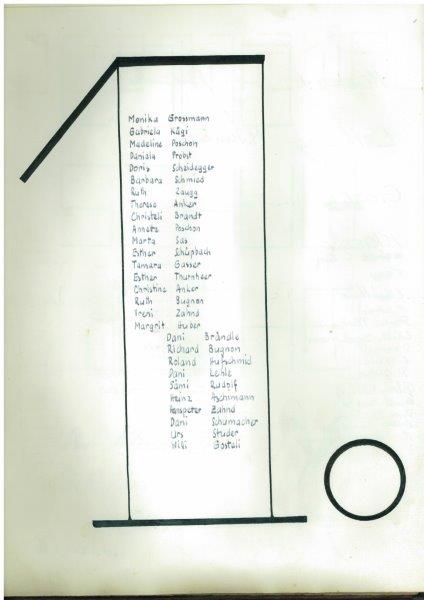 Monika Grossmann
Gabriela Kägi
Madeline Poschon
Daniela Probst
Doris Scheidegger
Barbara Schmied
Ruth Zaugg
Therese Anker
Christeli Brandt
Annette Poschon
Marta Sas
Esther Schüpbach
Tamara Gasser
Esther Thurnheer
Christine Anker
Ruth Bugnon
Ireni Zahnd
Margrit Huber
Dani Brändle
Richard Bugnon
Roland Hufschmid
Dani Lehle
Sämi Rudolf
Heinz Aschimann
Hanspeter Zahnd
Dani Schumacher
Urs Studer
Willi Gosteli